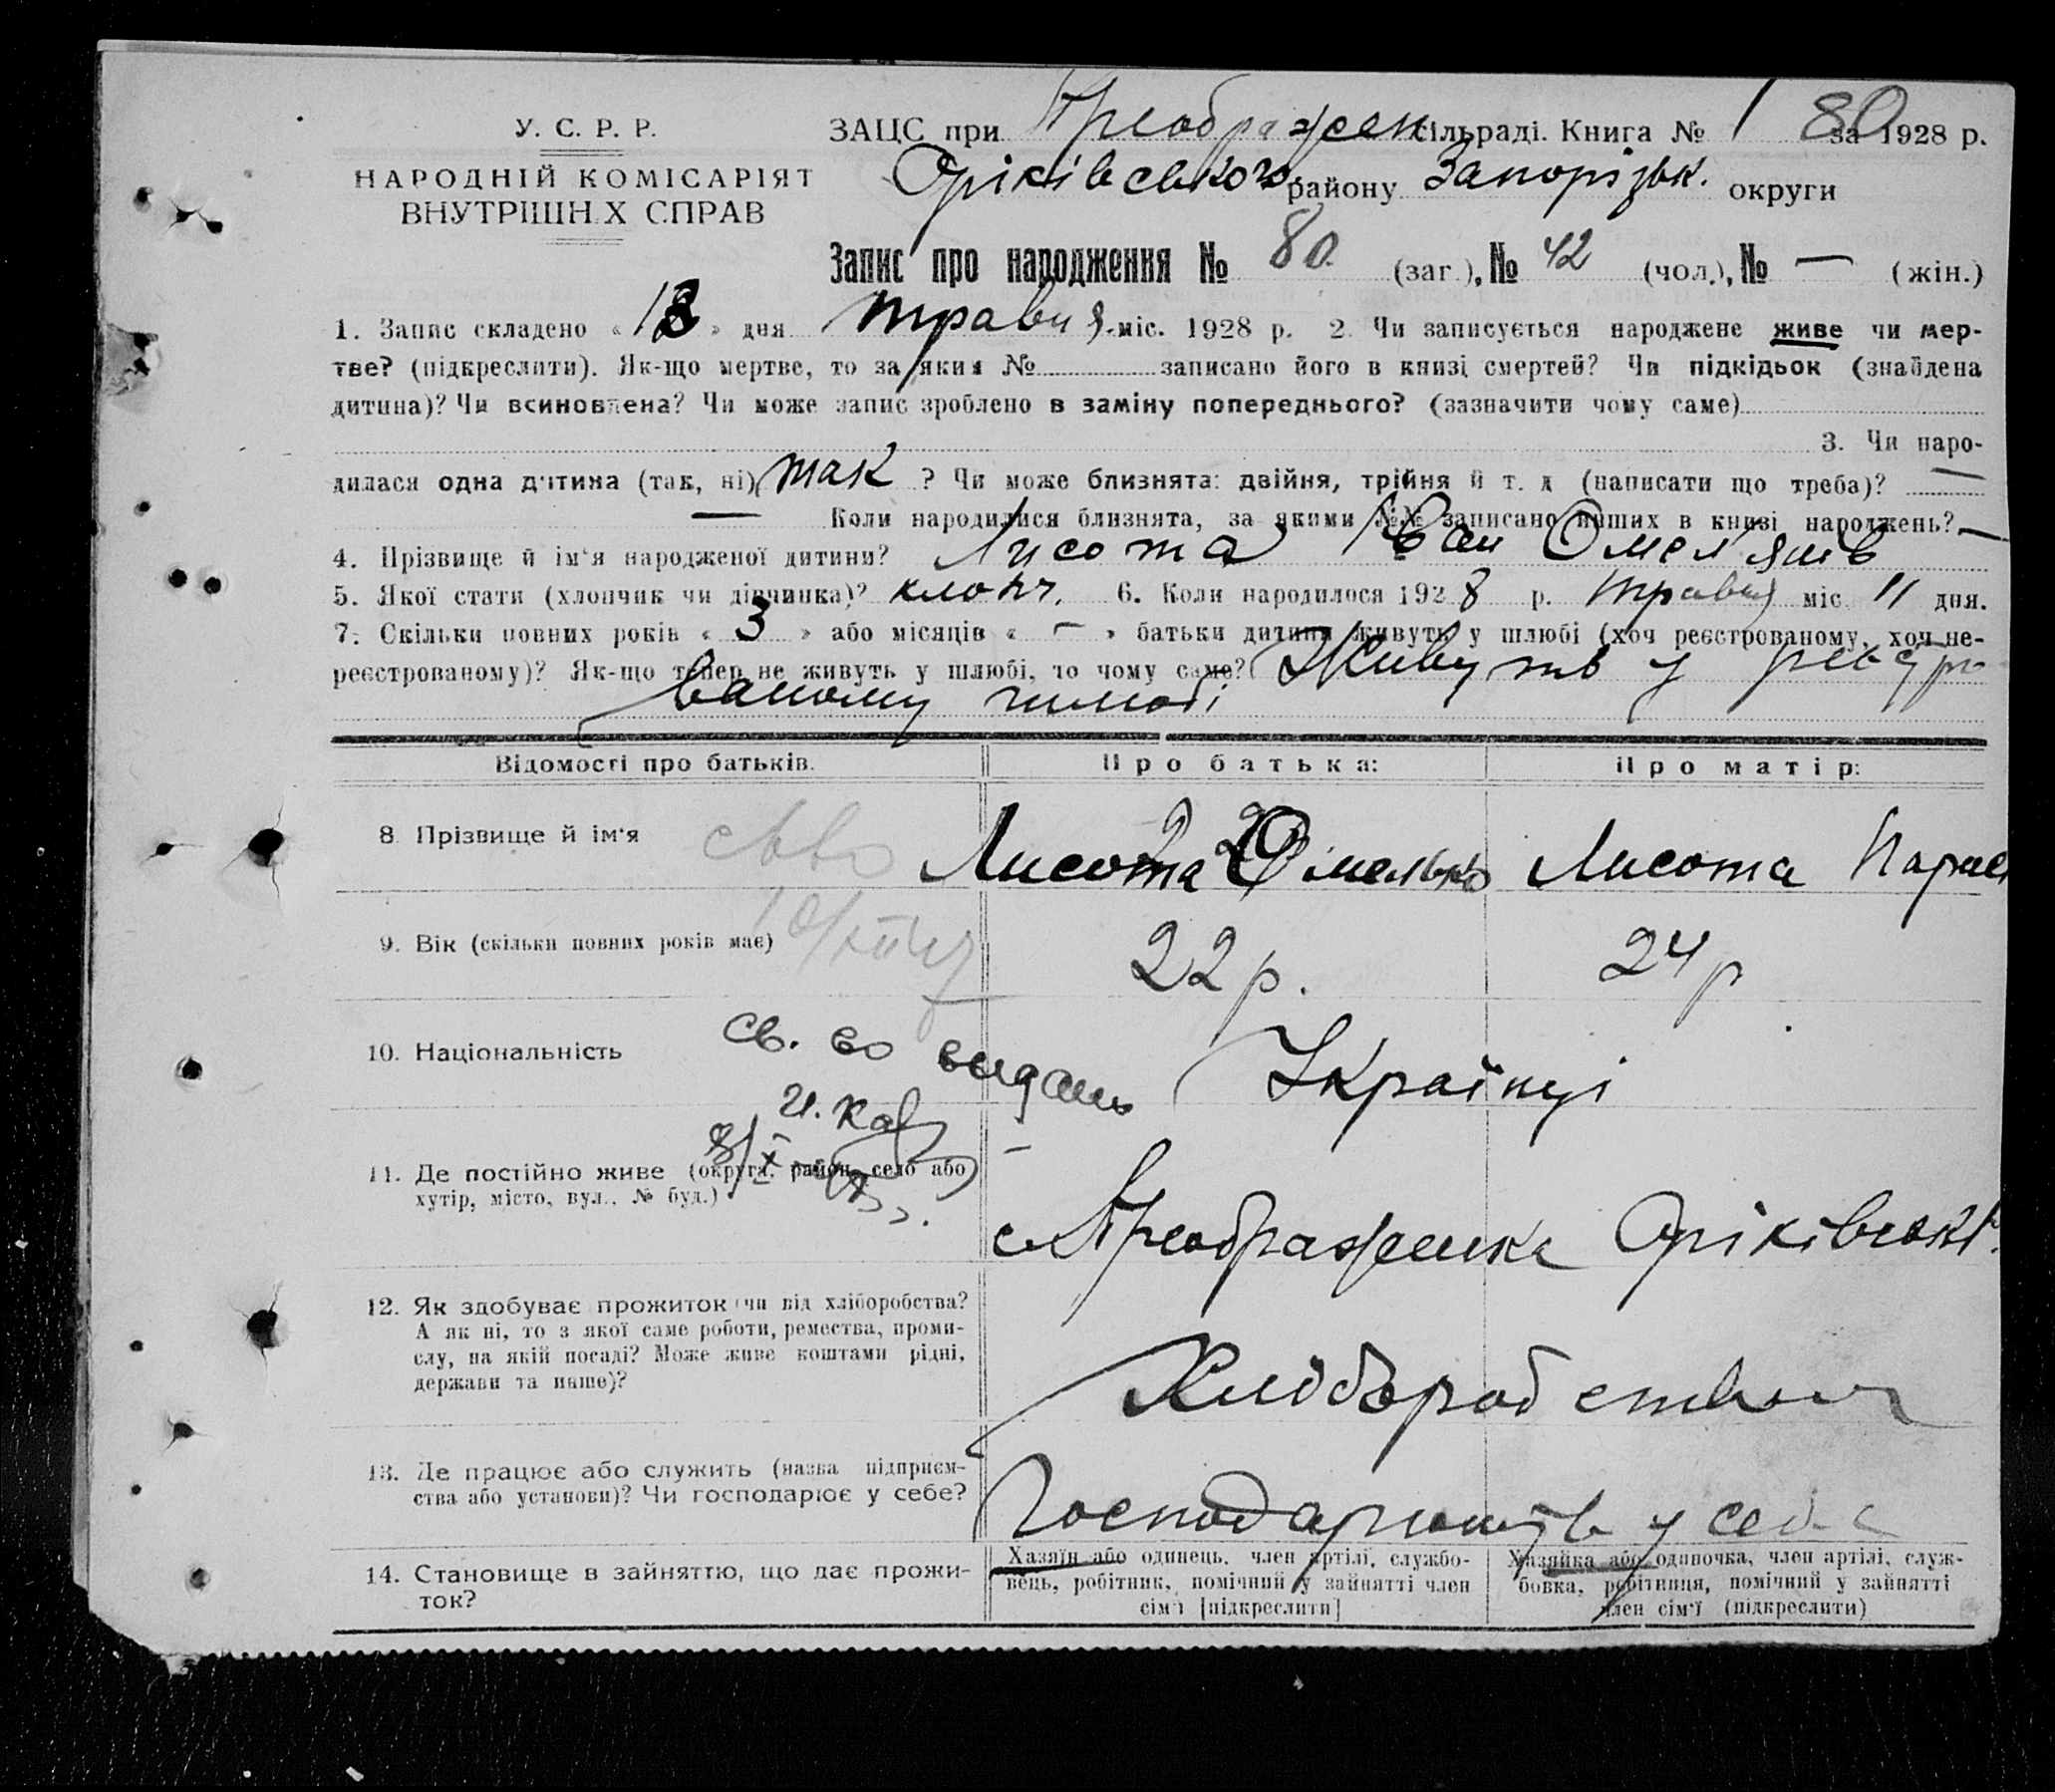 У. С. Р. Р.
НАРОДНІЙ КОМІСАРІЯТ
ВНУТРІШНІХ СПРАВ
ЗАЦС при Преображен сільраді. Книга № 1 80 за 1928 р.
Оріківського району Запорізьк. округи
Запис про народження № 80 (заг.), № 42 (чол.), № — (жін.)
1. Запис складено « 18 » дня травня міс. 1928 р. 2. Чи записується народжене живе чи мер-
тве? (підкреслити). Як-що мертве, то за яким № записано його в книзі смертей? Чи підкідьок (знайдена
дитина)? Чи всиновлена? Чи може запис зроблено в заміну попереднього? (зазначити чому саме)
3. Чи наро-
дилася одна дитина (так, ні) так ? Чи може близнята: двійня, трійня й т. д (написати що треба)? —
— Коли народилися близнята, за якими №№ записано інших в книзі народжень? —
4. Прізвище й ім'я народженої дитини? Лисота Іван Омел'янів
5. Якої стати (хлопчик чи дівчинка)? хлопч. 6. Коли народилося 1928 р. травня міс. 11 дня.
7. Скільки повних років « 3 » або місяців « — » батьки дитини живуть у шлюбі (хоч реєстрованому, хоч не-
реєстрованому)? Як-що тепер не живуть у шлюбі, то чому саме? Живуть у реєстро
ваному шлюбі
Відомості про батьків. Про батька: Про матір:
8. Прізвище й ім'я Лисота Омелько Лисота Парас
9. Вік (скільки повних років має) 22 р. 24 р
10. Національність Українці
св. во видань
8/X
11. Де постійно живе (округа, район, село або
хутір, місто, вул., № буд.)
с. Преображенка Оріківськ
12. Як здобуває прожиток (чи від хліборобства?
А як ні, то з якої саме роботи, ремества, проми-
слу, на якій посаді? Може живе коштами рідні,
держави та инше)?
Хліборобством
13. Де працює або служить (назва підприєм-
ства або установи)? Чи господарює у себе?
Господарюють у себе
14. Становище в зайняттю, що дає прожи-
ток?
Хазяїн або одинець, член артілі, службо-
вець, робітник, помічний у зайнятті член
сім'ї [підкреслити]
Хазяйка або одиночка, член артілі, служ-
бовка, робітниця, помічний у зайнятті
член сім'ї (підкреслити)